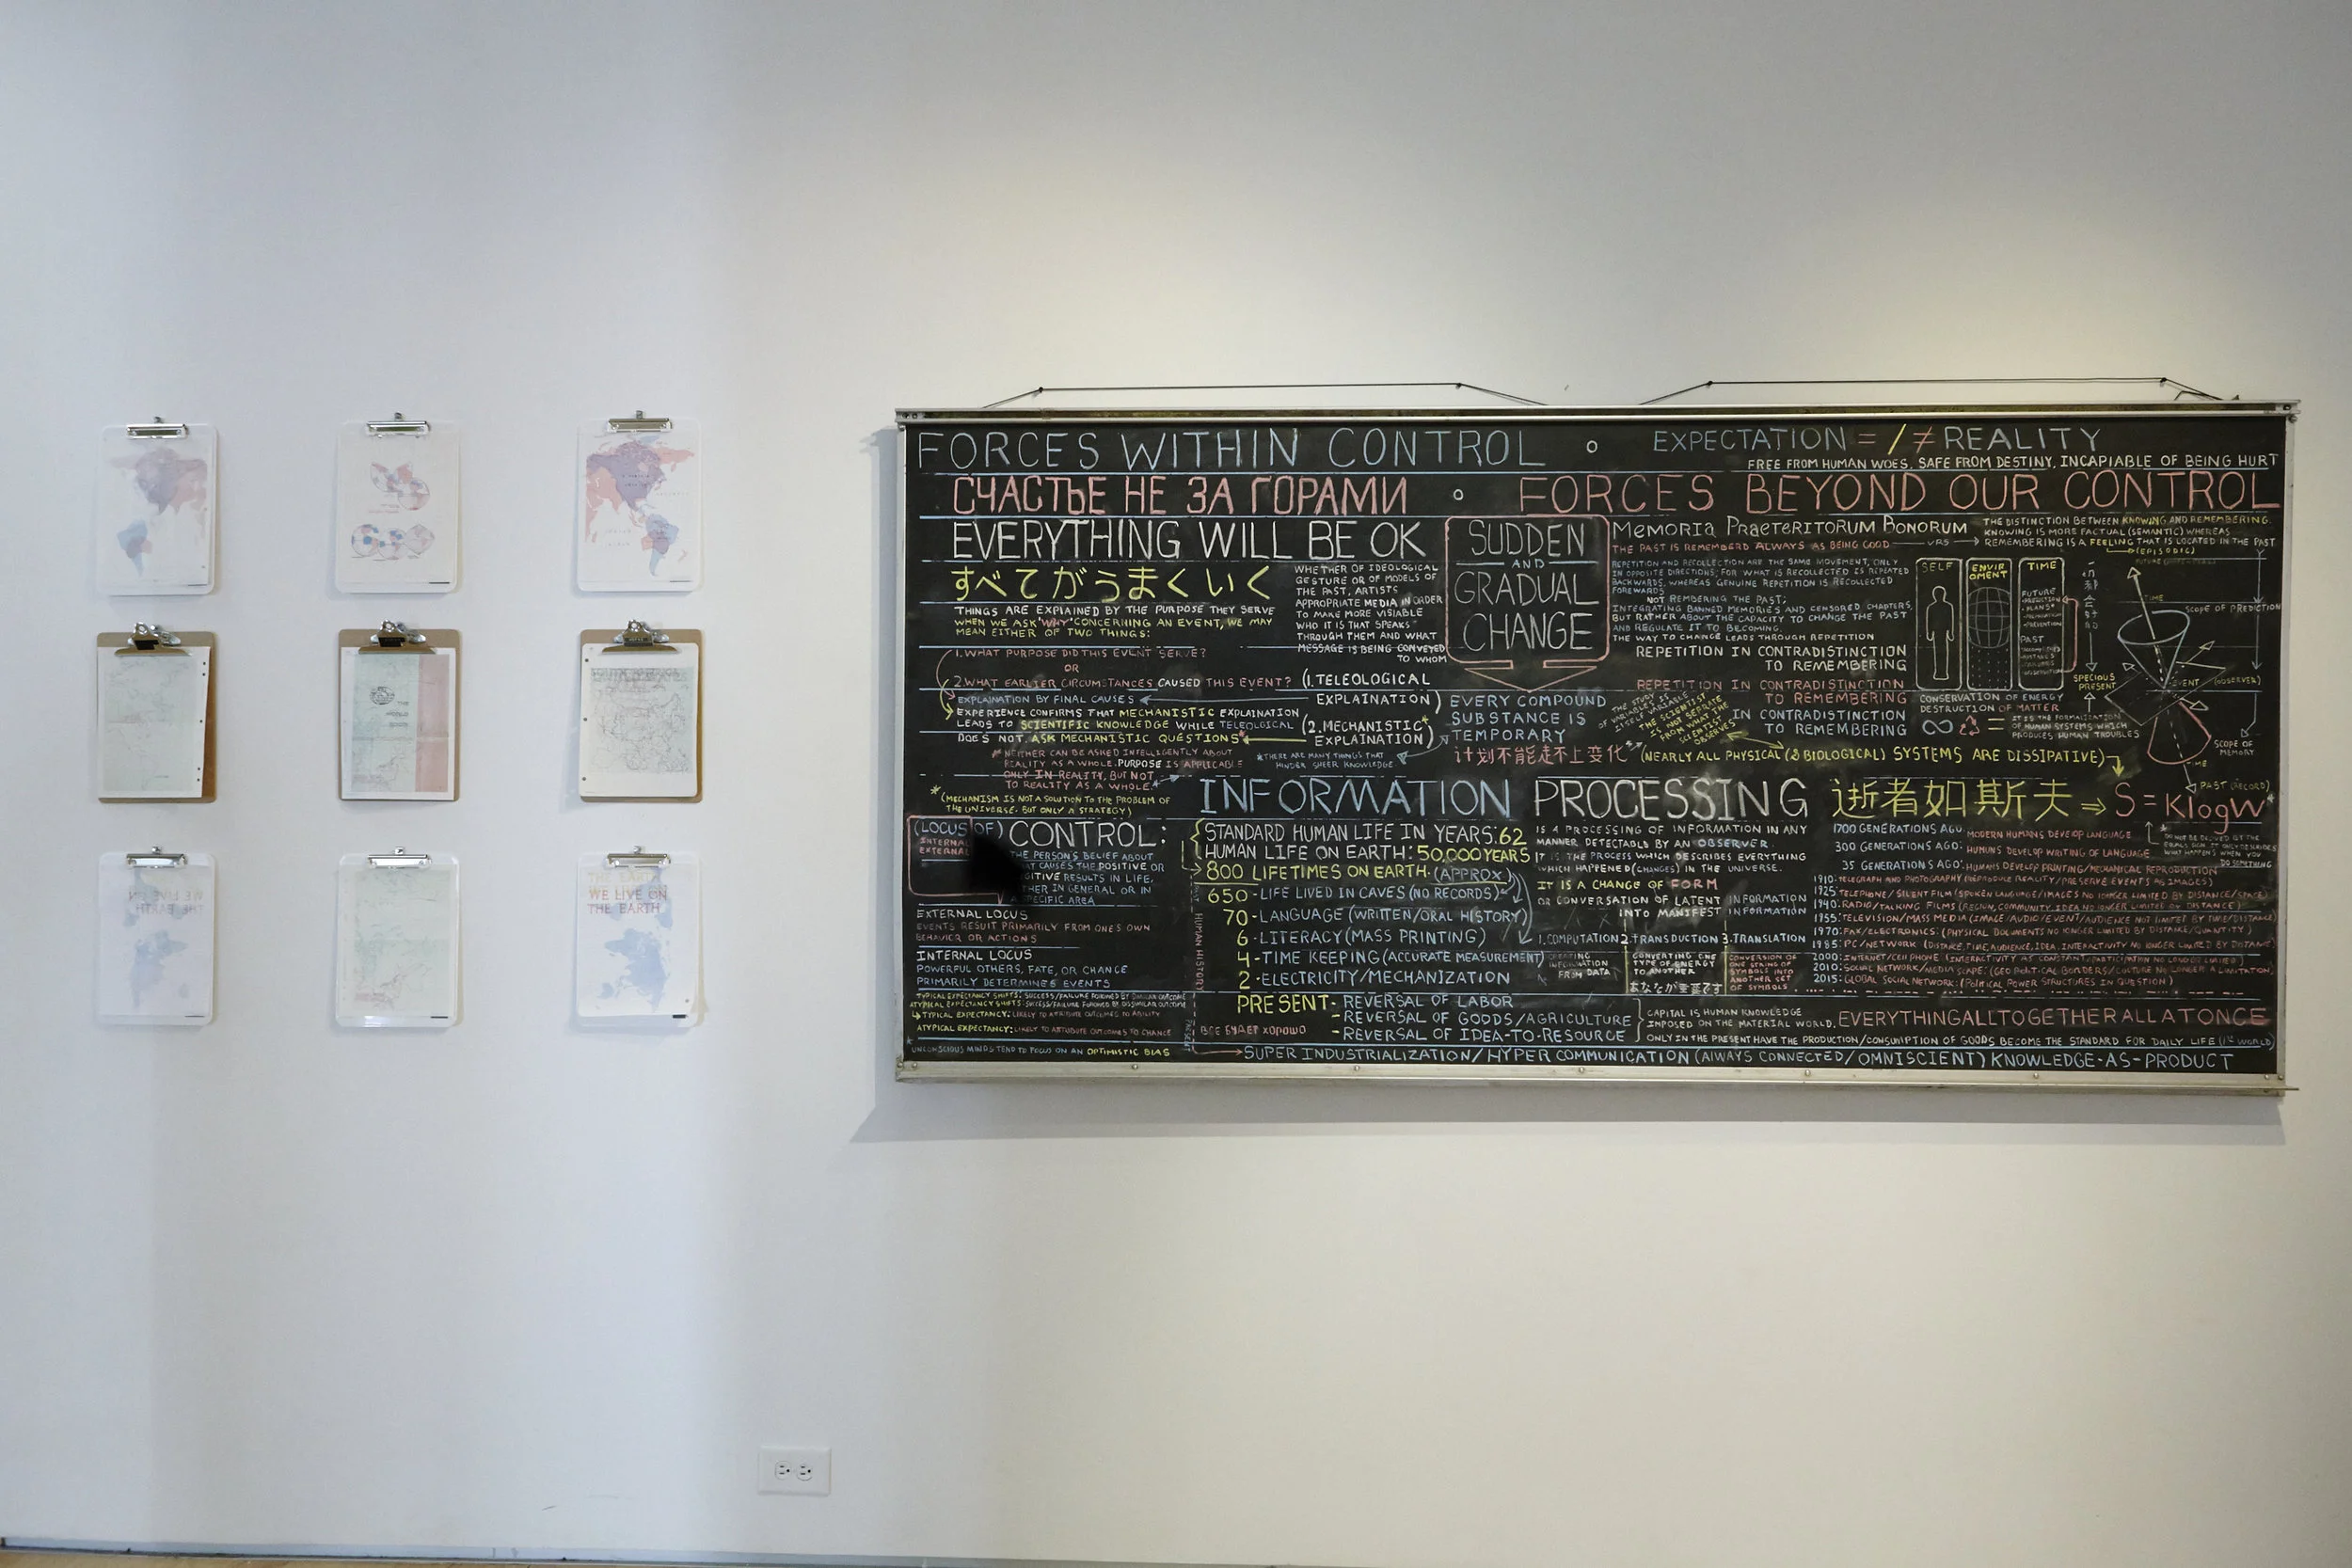 WE LIVE ON
THE EARTH
FORCES WITHIN CONTROL
EXPECTATION = / ≠ REALITY
FREE FROM HUMAN WOES, SAFE FROM DESTINY, INCAPIABLE OF BEING HURT
СЧАСТЬЕ НЕ ЗА ГОРАМИ
FORCES BEYOND OUR CONTROL
EVERYTHING WILL BE OK
すべてがうまくいく
THINGS ARE EXPLAINED BY THE PURPOSE THEY SERVE
WHEN WE ASK "WHY" CONCERNING AN EVENT, WE MAY
MEAN EITHER OF TWO THINGS:
1. WHAT PURPOSE DID THIS EVENT SERVE?
OR
2. WHAT EARLIER CIRCUMSTANCES CAUSED THIS EVENT?
(1. TELEOLOGICAL
EXPLAINATION)
EXPLAINATION BY FINAL CAUSES
EXPERIENCE CONFIRMS THAT MECHANISTIC EXPLAINATION
LEADS TO SCIENTIFIC KNOWLEDGE WHILE TELEOLOGICAL
DOES NOT ASK MECHANISTIC QUESTIONS*
(2. MECHANISTIC*
EXPLAINATION)
* NEITHER CAN BE ASKED INTELLIGENTLY ABOUT
REALITY AS A WHOLE. PURPOSE IS APPLICABLE
ONLY IN REALITY, BUT NOT
TO REALITY AS A WHOLE.
*THERE ARE MANY THINGS THAT
HINDER SHEER KNOWLEDGE
*(MECHANISM IS NOT A SOLUTION TO THE PROBLEM OF
THE UNIVERSE, BUT ONLY A STRATEGY)
WHETHER OF IDEOLOGICAL
GESTURE OR OF MODELS OF
THE PAST, ARTISTS
APPROPRIATE MEDIA IN ORDER
TO MAKE MORE VISIBLE
WHO IT IS THAT SPEAKS
THROUGH THEM AND WHAT
MESSAGE IS BEING CONVEYED
TO WHOM
SUDDEN
AND
GRADUAL
CHANGE
EVERY COMPOUND
SUBSTANCE IS
TEMPORARY
计划不能赶不上变化
MEMORIA PRAETERITORUM BONORUM
THE PAST IS REMEMBERD ALWAYS AS BEING GOOD
VRS
THE DISTINCTION BETWEEN KNOWING AND REMEMBERING.
KNOWING IS MORE FACTUAL (SEMANTIC) WHEREAS
REMEMBERING IS A FEELING THAT IS LOCATED IN THE PAST
(EPISODIC)
REPETITION AND RECOLLECTION ARE THE SAME MOVEMENT, ONLY
IN OPPOSITE DIRECTIONS; FOR WHAT IS RECOLLECTED IS REPEATED
BACKWARDS, WHEREAS GENUINE REPETITION IS RECOLLECTED
FOREWARDS
NOT REMBERING THE PAST;
INTEGRATING BANNED MEMORIES AND CENSORED CHAPTERS,
BUT RATHER ABOUT THE CAPACITY TO CHANGE THE PAST
AND REGULATE IT TO BECOMING.
THE WAY TO CHANGE LEADS THROUGH REPETITION
REPETITION IN CONTRADISTINCTION
TO REMEMBERING
REPETITION IN CONTRADISTINCTION
TO REMEMBERING
IN CONTRADISTINCTION
TO REMEMBERING
(NEARLY ALL PHYSICAL (& BIOLOGICAL) SYSTEMS ARE DISSIPATIVE)
SELF
ENVIRONMENT
TIME
FUTURE
PAST
CONSERVATION OF ENERGY
DESTRUCTION OF MATTER
∞
PRODUCES HUMAN TROUBLES
SPECIOUS
PRESENT
TIME
SCOPE OF PREDICTION
EVENT
(OBSERVER)
SCOPE OF
MEMORY
TIME
PAST (RECORD)
INFORMATION PROCESSING
逝者如斯夫
S = KlogW*
(LOCUS OF) CONTROL:
INTERNAL
EXTERNAL
THE PERSON'S BELIEF ABOUT
CAUSES THE POSITIVE OR
RESULTS IN LIFE,
IN GENERAL OR IN
SPECIFIC AREA
EXTERNAL LOCUS
EVENTS RESULT PRIMARILY FROM ONES OWN
BEHAVIOR OR ACTIONS
INTERNAL LOCUS
POWERFUL OTHERS, FATE, OR CHANCE
PRIMARILY DETERMINES EVENTS
TYPICAL EXPECTANCY: LIKELY TO ATTRIBUTE OUTCOMES TO ABILITY
ATYPICAL EXPECTANCY: LIKELY TO ATTRIBUTE OUTCOMES TO CHANCE
UNCONSCIOUS MINDS TEND TO FOCUS ON AN OPTIMISTIC BIAS
STANDARD HUMAN LIFE IN YEARS: 62
HUMAN LIFE ON EARTH: 50,000 YEARS
800 LIFETIMES ON EARTH. (APPROX.)
650 - LIFE LIVED IN CAVES (NO RECORDS)
70 - LANGUAGE (WRITTEN/ORAL HISTORY)
6 - LITERACY (MASS PRINTING)
4 - TIME KEEPING (ACCURATE MEASUREMENT)
2 - ELECTRICITY/MECHANIZATION
HUMAN HISTORY
PRESENT
PRESENT - REVERSAL OF LABOR
- REVERSAL OF GOODS/AGRICULTURE
- REVERSAL OF IDEA-TO-RESOURCE
ВСЕ БУДЕТ ХОРОШО
SUPER INDUSTRIALIZATION/HYPER COMMUNICATION (ALWAYS CONNECTED/OMNISCIENT) KNOWLEDGE-AS-PRODUCT
IS A PROCESSING OF INFORMATION IN ANY
MANNER DETECTABLE BY AN OBSERVER.
IT IS THE PROCESS WHICH DESCRIBES EVERYTHING
WHICH HAPPENED (CHANGES) IN THE UNIVERSE.
IT IS A CHANGE OF FORM
OR CONVERSATION OF LATENT INFORMATION
INTO MANIFEST INFORMATION
1. COMPUTATION 2. TRANSDUCTION 3. TRANSLATION
INFORMATION
FROM DATA
CONVERTING ONE
TYPE OF ENERGY
TO ANOTHER
CONVERSION OF
ONE STRING OF
SYMBOLS INTO
ANOTHER SET
OF SYMBOLS
あなたが重要です
1700 GENERATIONS AGO: MODERN HUMANS DEVELOP LANGUAGE
300 GENERATIONS AGO: HUMANS DEVELOP WRITING OF LANGUAGE
35 GENERATIONS AGO: HUMANS DEVELOP PRINTING/MECHANICAL REPRODUCTION
1910: TELEGRAPH AND PHOTOGRAPHY (REPRODUCE REALITY/PRESERVE EVENTS AS IMAGES)
1925: TELEPHONE/SILENT FILM (SPOKEN LANGUAGE/IMAGES NO LONGER LIMITED BY DISTANCE/SPACE)
1940: RADIO/TALKING FILMS (REGION, COMMUNITY, IDEA NO LONGER LIMITED BY DISTANCE)
1955: TELEVISION/MASS MEDIA (IMAGE/AUDIO/EVENT/AUDIENCE NOT LIMITED BY TIME/DISTANCE)
1970: FAX/ELECTRONICS: (PHYSICAL DOCUMENTS NO LONGER LIMITED BY DISTANCE/QUANTITY)
1985: PC/NETWORK (DISTANCE, TIME, AUDIENCE, IDEA, INTERACTIVITY NO LONGER LIMITED BY DISTANCE)
2000: INTERNET/CELL PHONE (INTERACTIVITY AS CONSTANT/PARTICIPATION NO LONGER LIMITED)
2010: SOCIAL NETWORK/MEDIA SCAPE: (GEO POLITICAL BORDERS/CULTURE NO LONGER A LIMITATION)
2015: GLOBAL SOCIAL NETWORK: (POLITICAL POWER STRUCTURES IN QUESTION)
CAPITAL IS HUMAN KNOWLEDGE
IMPOSED ON THE MATERIAL WORLD.
EVERYTHINGALLTOGETHERALLATONCE
ONLY IN THE PRESENT HAVE THE PRODUCTION/CONSUMPTION OF GOODS BECOME THE STANDARD FOR DAILY LIFE (1ST WORLD)